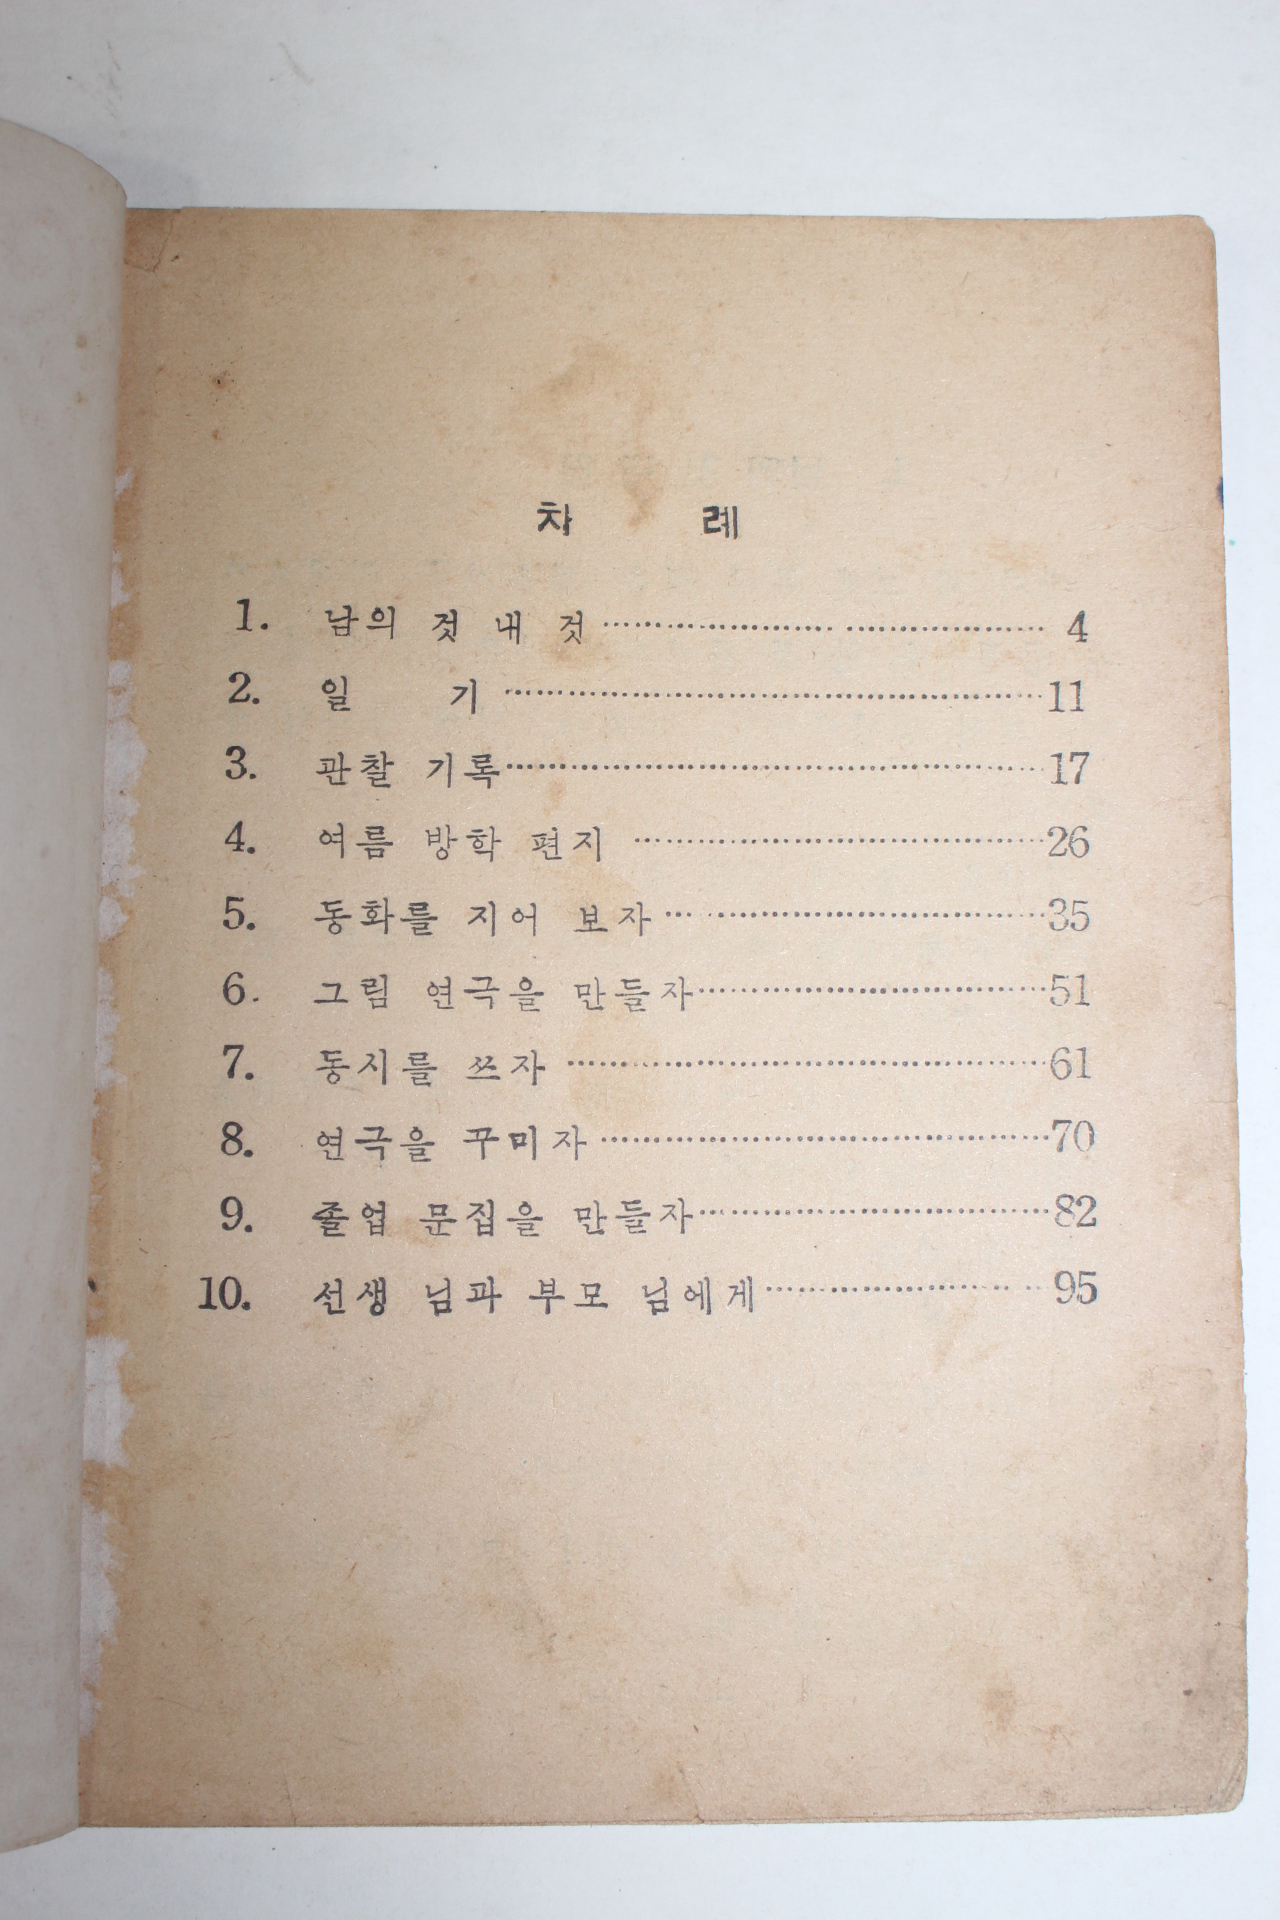 차 례
1. 남의 것 내 것 …… 4
2. 일 기 …… 11
3. 관찰 기록 …… 17
4. 여름 방학 편지 …… 26
5. 동화를 지어 보자 …… 35
6. 그림 연극을 만들자 …… 51
7. 동시를 쓰자 …… 61
8. 연극을 꾸미자 …… 70
9. 졸업 문집을 만들자 …… 82
10. 선생 님과 부모 님에게 …… 95